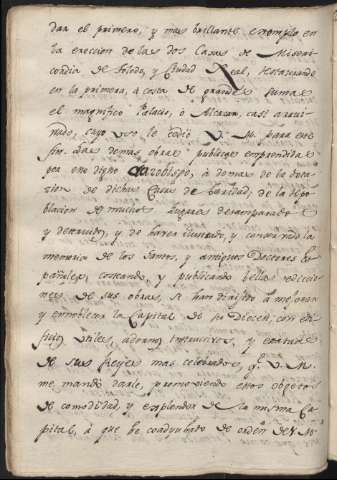 dar el primero, y mas brillante exemplo en
la ereccion de las dos Casas de Miseri
cordia de Toledo, y Ciudad Real, restaurando
en la primera, á costa de grandes sumas
el magnifico Palacio, ó Alcazar, casi arrui
nado, cuyo uso le cedió V. M. para este
fin. Las demas obras publicas emprendidas
por este digno Arzobispo, á demas de la dota
cion de dichas Casas de Caridad, de la
blacion de muchos Lugares desamparados
y destruidos, y de haver ilustrado, y conservado la
memoria de los Santos, y antiguos Doctores Es
pañoles, costeando, y publicando bellas ediccio
nes de sus obras, se han dirigido á mejorar
y ennoblecer la Capital de su Diocesi, con edi
ficios utiles, adornos instructivos, y estatuas
de sus Reyes mas celebrados, qe. V. M.
me mandó darle, promoviendo estos objetos
de comodidad, y esplendor de la misma Ca
pital, á que he coadyubado de orden de V. M.